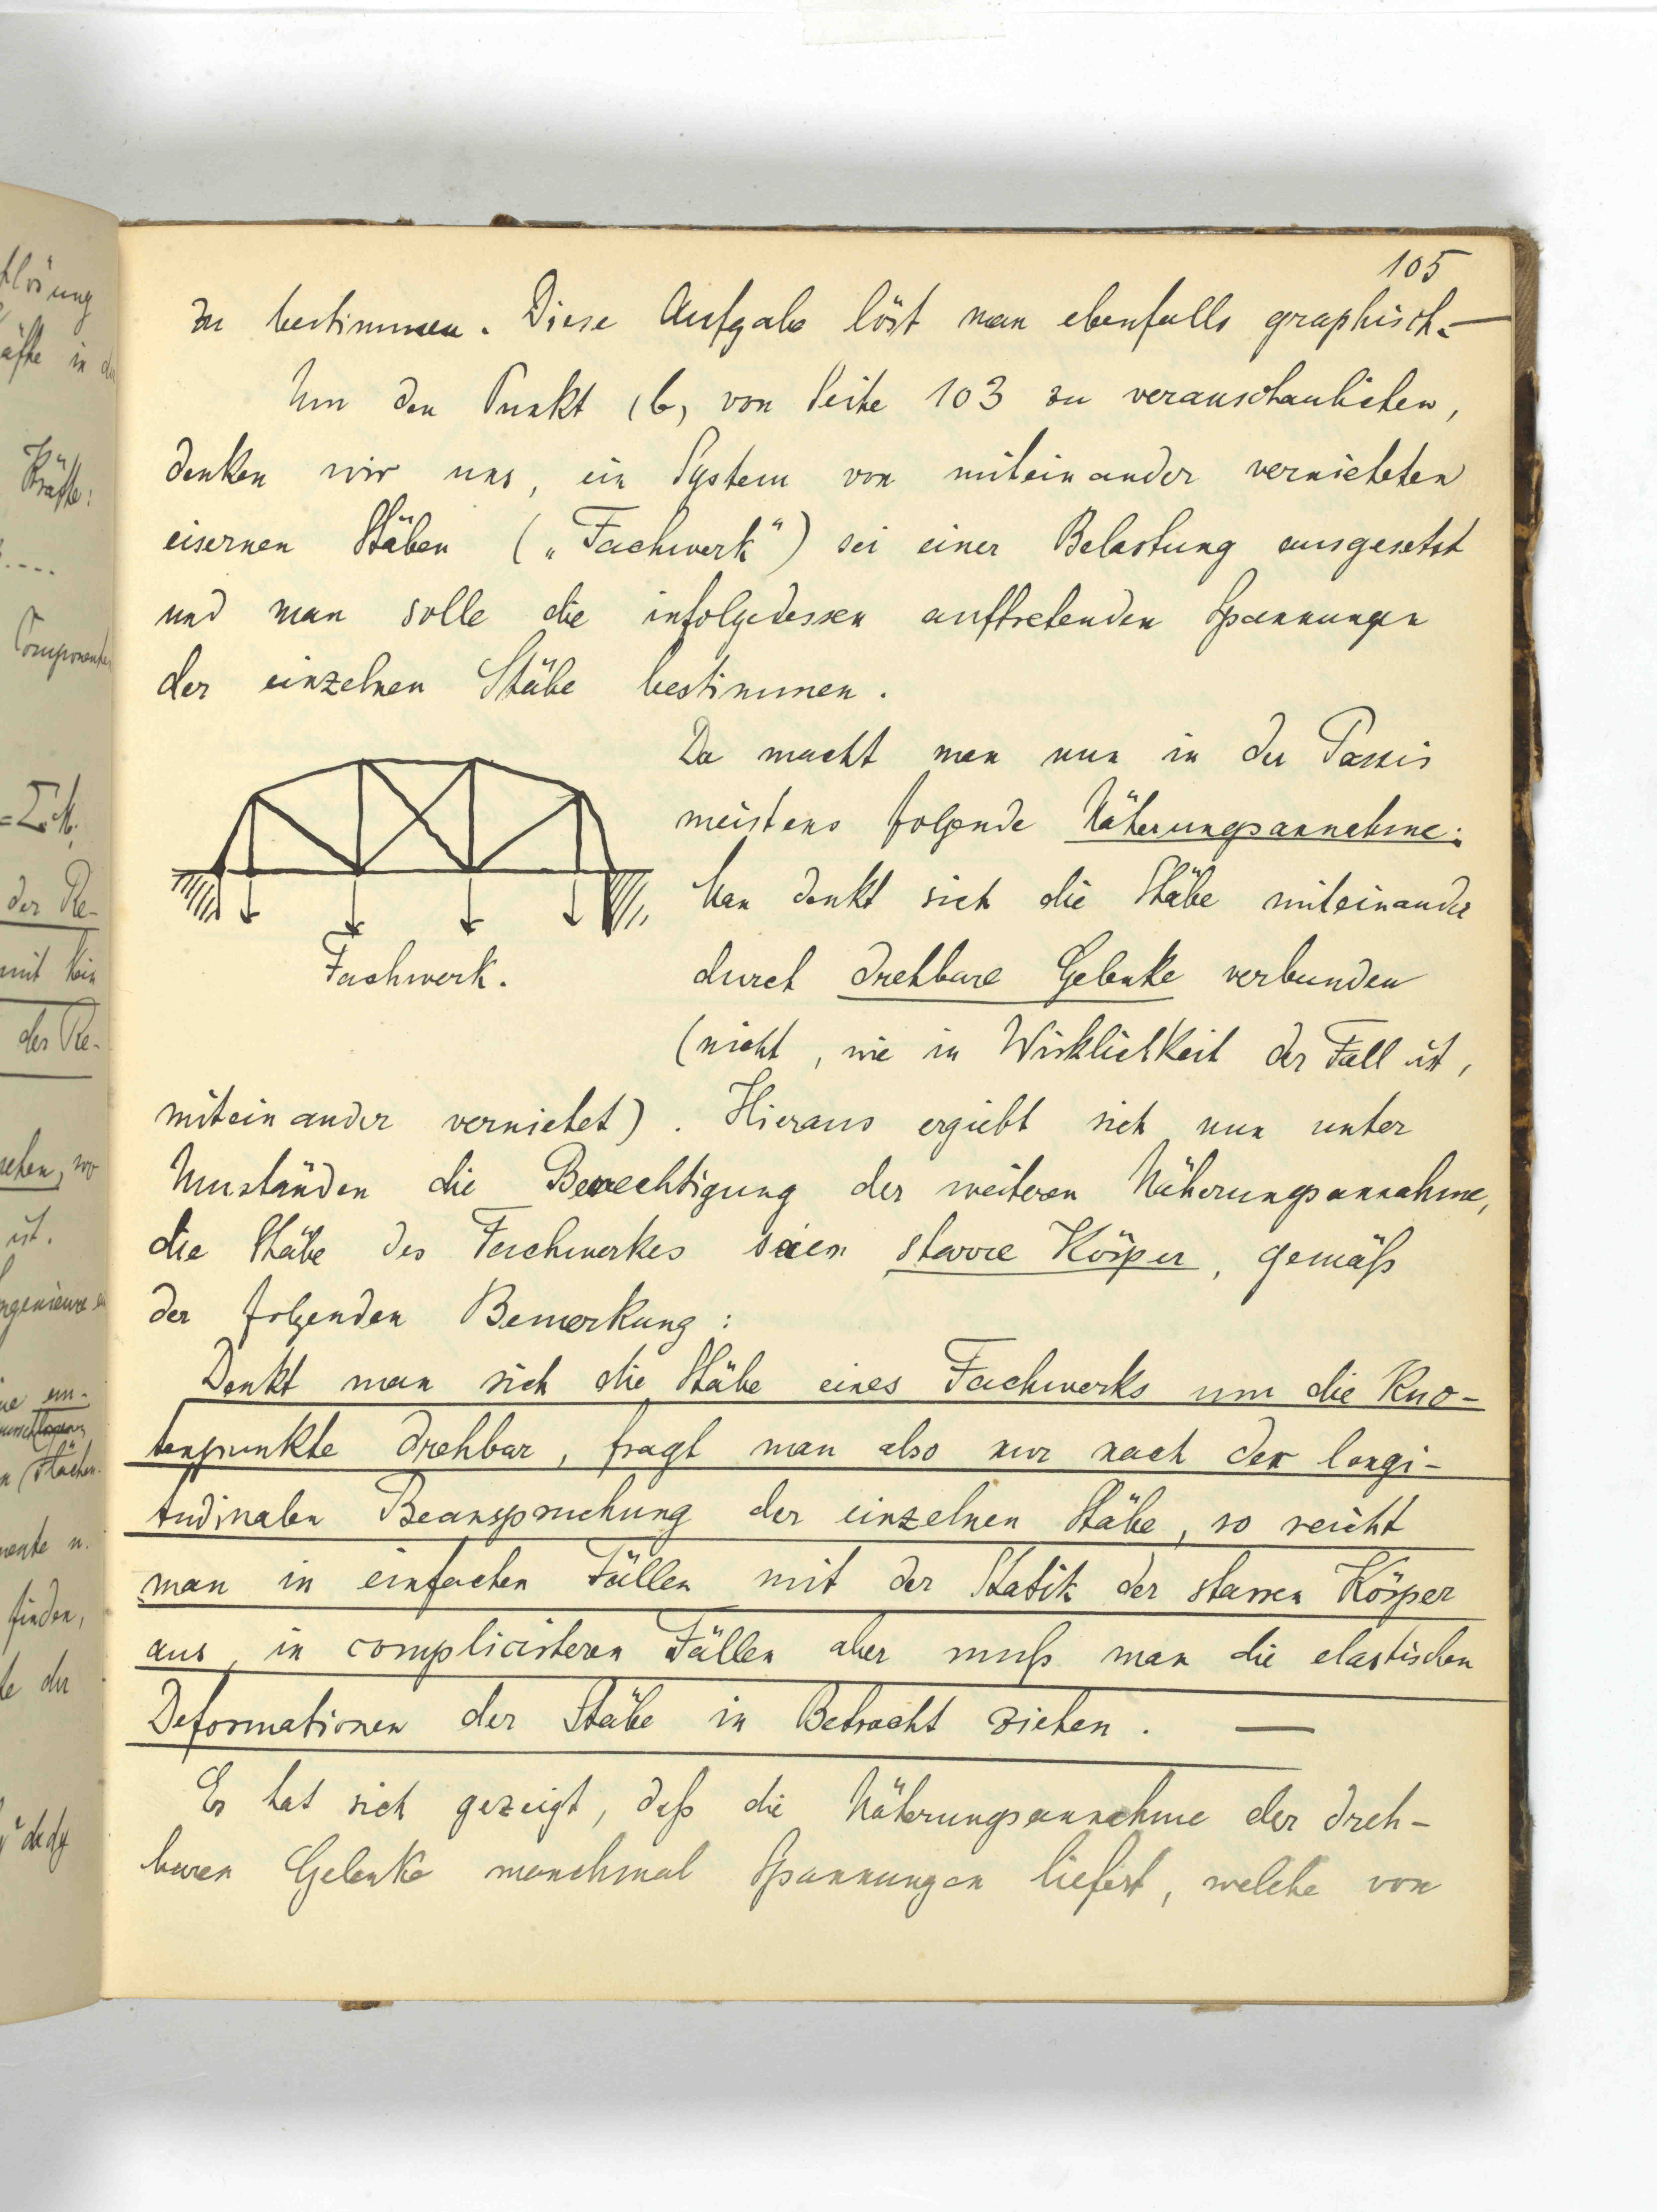 105
zu bestimmen. Diese Aufgabe löst man ebenfalls graphisch. —
Um den Punkt (b) von Seite 103 zu veranschaulichen,
denken wir uns, ein System von miteinander vernieteten
eisernen Stäben („Fachwerk“) sei einer Belastung ausgesetzt
und man solle die infolgedessen auftretenden Spannungen
der einzelnen Stäbe bestimmen.
Da macht man nun in der Praxis
meistens folgende Näherungsannahme:
Man denkt sich die Stäbe miteinander
Fachwerk.
durch drehbare Gelenke verbunden
(nicht, wie in Wirklichkeit der Fall ist,
miteinander vernietet). Hieraus ergiebt sich nun unter
Umständen die Berechtigung der weiteren Näherungsannahme,
die Stäbe des Fachwerkes seien starre Körper, gemäß
der folgenden Bemerkung:
Denkt man sich die Stäbe eines Fachwerks um die Kno-
tenpunkte drehbar, fragt man also nur nach der longi-
tudinalen Beanspruchung der einzelnen Stäbe, so reicht
man in einfachen Fällen mit der Statik der starren Körper
aus, in complicirteren Fällen aber muß man die elastischen
Deformationen der Stäbe in Betracht ziehen. —
Es hat sich gezeigt, daß die Näherungsannahme der dreh-
baren Gelenke manchmal Spannungen liefert, welche von
Kräfte:
der Re-
mit kein
der Re-
ist.
finden,